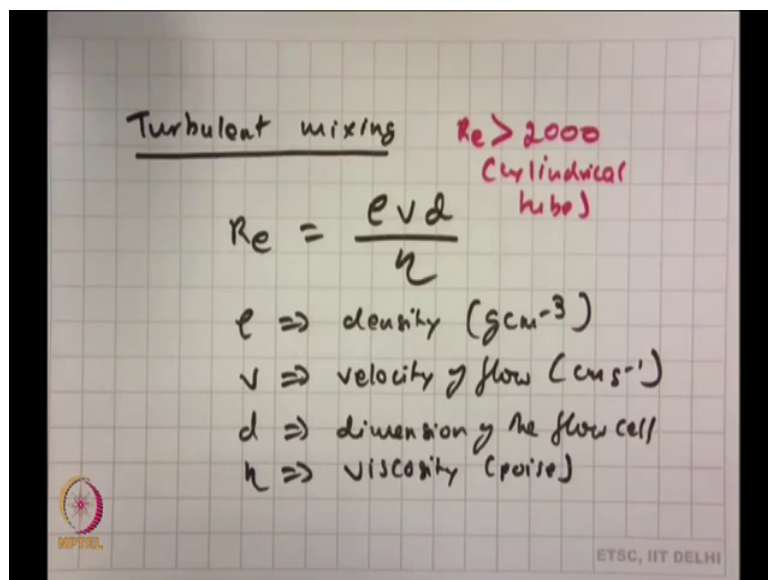 Turbulent mixing
Re > 2000
(cylindrical
tubes)
Re = ρvd / η
ρ => density (gcm⁻³)
v => velocity of flow (cm s⁻¹)
d => dimension of the flow cell
η => viscosity (poise)
NPTEL
ETSC, IIT DELHI